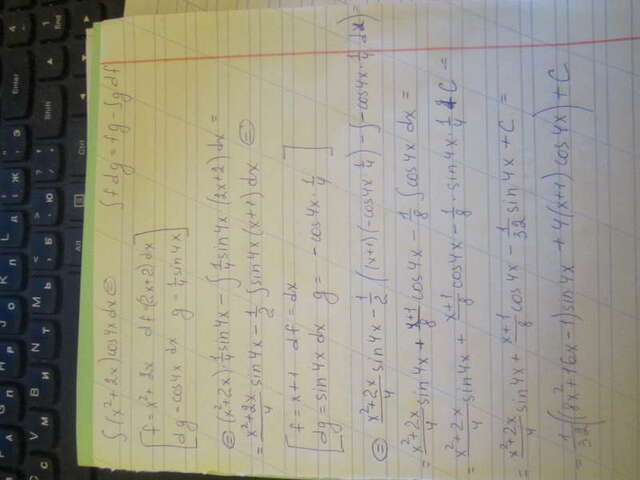 К Л Д Ж Э Enter
С М И Т Ь Б Ю Shift 1 End
Alt Ctrl
∫(x²+2x)cos4x dx ⊜ ∫f dg = fg - ∫g df
[f = x²+2x df = (2x+2)dx
dg = cos4x dx g = 1/4 sin4x]
⊜ (x²+2x)·1/4 sin4x - ∫1/4 sin4x (2x+2) dx =
= (x²+2x)/4 sin4x - 1/2 ∫sin4x (x+1) dx ⊜
[f = x+1 df = dx
dg = sin4x dx g = -cos4x·1/4]
⊜ (x²+2x)/4 sin4x - 1/2 ((x+1)(-cos4x·1/4) - ∫-cos4x·1/4 dx) =
= (x²+2x)/4 sin4x + (x+1)/8 cos4x - 1/8 ∫cos4x dx =
= (x²+2x)/4 sin4x + (x+1)/8 cos4x - 1/8·sin4x·1/4 + C =
= (x²+2x)/4 sin4x + (x+1)/8 cos4x - 1/32 sin4x + C =
= 1/32((8x²+16x-1)sin4x + 4(x+1)cos4x) + C